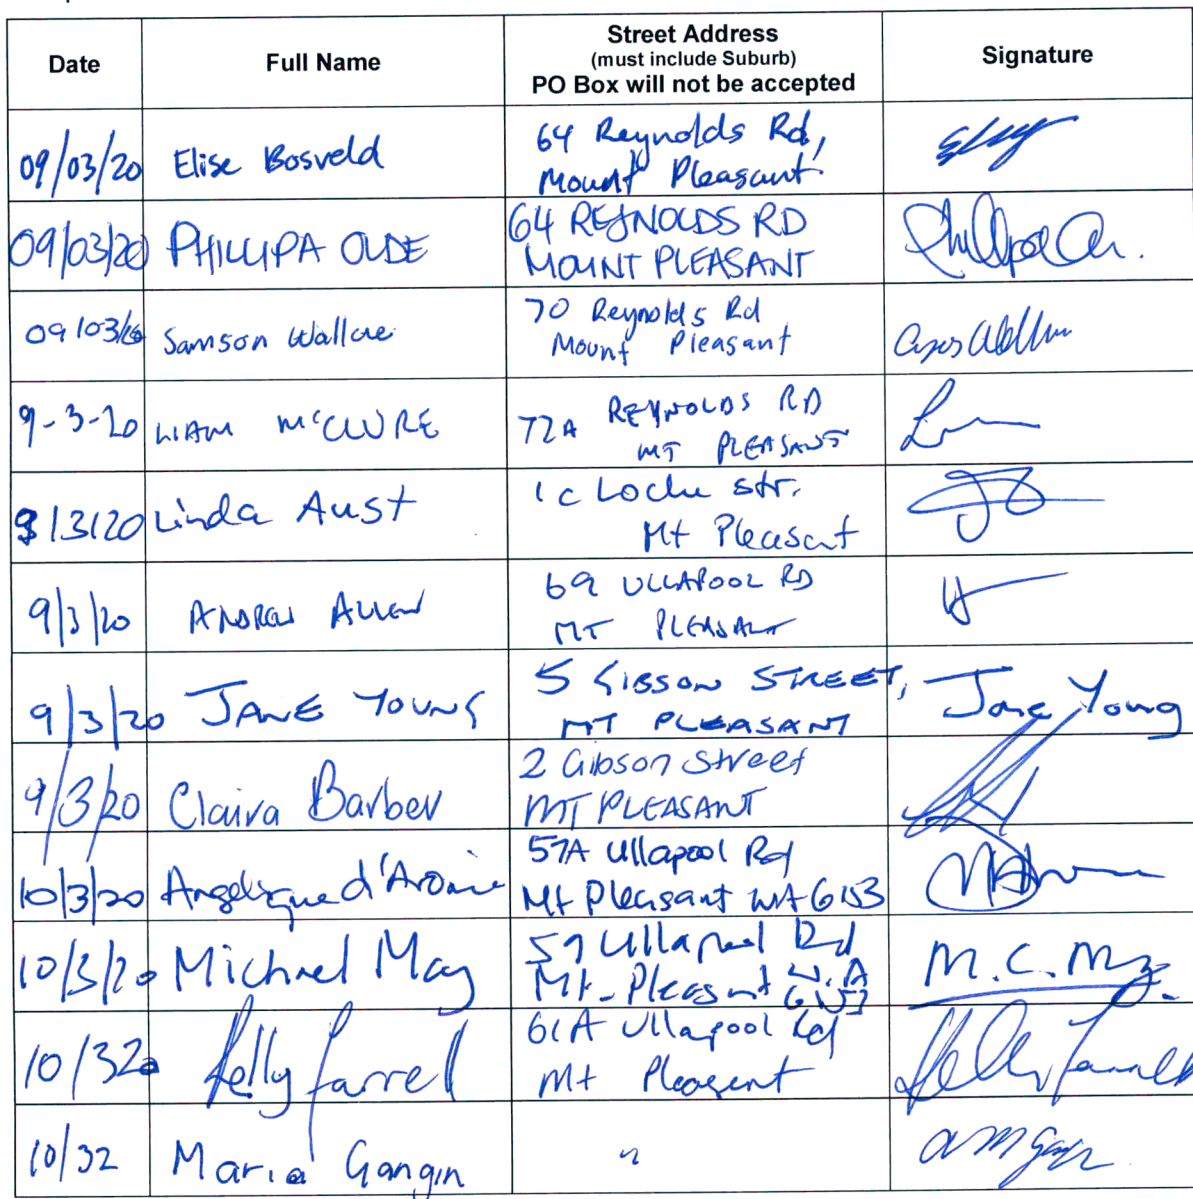 Date
Full Name
Street Address
(must include Suburb)
PO Box will not be accepted
Signature
09/03/20 Elise Bosveld 64 Reynolds Rd,
Mount Pleasant.
09/03/20 PHILLIPA OLDE 64 REYNOLDS RD
MOUNT PLEASANT
09/03/20 Samson Wallace 70 Reynolds Rd
Mount Pleasant
9-3-20 LIAM McCLURE 72A REYNOLDS RD
MT PLEASANT
9/3/20 Linda Aust 1c Locke str.
Mt Pleasant
9/3/20 ANDREW ALLEN 69 ULLAPOOL RD
MT PLEASANT
9/3/20 JANE YOUNG 5 GIBSON STREET, Jane Young
MT PLEASANT
9/3/20 Claira Barber 2 Gibson Street
MT PLEASANT
10/3/20 Angelique 57A Ullapool Rd
Mt Pleasant WA 6153
10/3/20 Michael May 59 Ullapool Rd M.C. May.
Mt. Pleasant W.A
6153
10/320 Kelly Farrell 61A Ullapool Rd Kelly Farrell
Mt Pleasent
10/32 Maria Gangin "